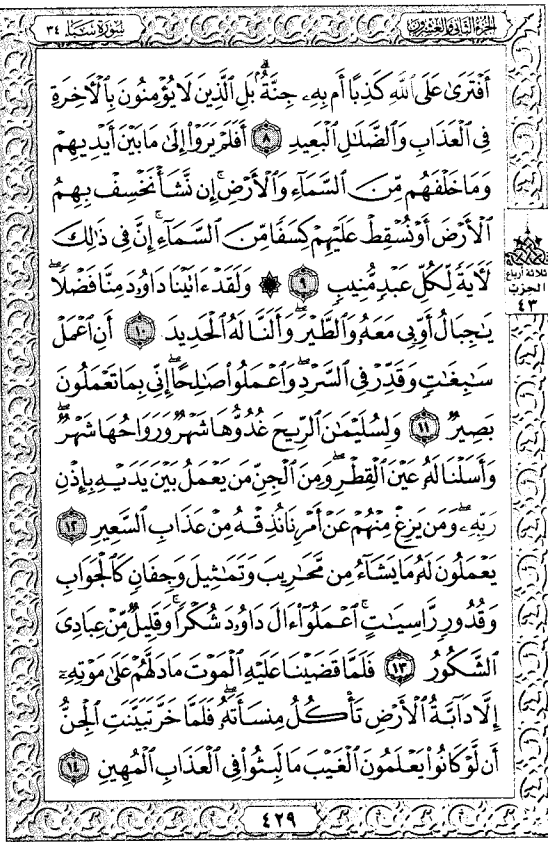 الجزء الثاني والعشرون
سورة سبإ ٣٤
أَفْتَرَىٰ عَلَى ٱللَّهِ كَذِبًا أَم بِهِۦ جِنَّةٌۢ بَلِ ٱلَّذِينَ لَا يُؤْمِنُونَ بِٱلْأَخِرَةِ
فِى ٱلْعَذَابِ وَٱلضَّلَٰلِ ٱلْبَعِيدِ ٨ أَفَلَمْ يَرَوْا۟ إِلَىٰ مَا بَيْنَ أَيْدِيهِمْ
وَمَا خَلْفَهُم مِّنَ ٱلسَّمَآءِ وَٱلْأَرْضِ ۚ إِن نَّشَأْ نَخْسِفْ بِهِمُ
ٱلْأَرْضَ أَوْ نُسْقِطْ عَلَيْهِمْ كِسَفًا مِّنَ ٱلسَّمَآءِ ۚ إِنَّ فِى ذَٰلِكَ
لَأَيَةً لِّكُلِّ عَبْدٍ مُّنِيبٍ ٩ ۞ وَلَقَدْ ءَاتَيْنَا دَاوُۥدَ مِنَّا فَضْلًا ۖ
يَٰجِبَالُ أَوِّبِى مَعَهُۥ وَٱلطَّيْرَ ۖ وَأَلَنَّا لَهُ ٱلْحَدِيدَ ١٠ أَنِ ٱعْمَلْ
سَٰبِغَٰتٍ وَقَدِّرْ فِى ٱلسَّرْدِ ۖ وَٱعْمَلُوا۟ صَٰلِحًا ۖ إِنِّى بِمَا تَعْمَلُونَ
بَصِيرٌ ١١ وَلِسُلَيْمَٰنَ ٱلرِّيحَ غُدُوُّهَا شَهْرٌ وَرَوَاحُهَا شَهْرٌ ۖ
وَأَسَلْنَا لَهُۥ عَيْنَ ٱلْقِطْرِ ۖ وَمِنَ ٱلْجِنِّ مَن يَعْمَلُ بَيْنَ يَدَيْهِ بِإِذْنِ
رَبِّهِۦ ۖ وَمَن يَزِغْ مِنْهُمْ عَنْ أَمْرِنَا نُذِقْهُ مِنْ عَذَابِ ٱلسَّعِيرِ ١٢
يَعْمَلُونَ لَهُۥ مَا يَشَآءُ مِن مَّحَٰرِيبَ وَتَمَٰثِيلَ وَجِفَانٍ كَٱلْجَوَابِ
وَقُدُورٍ رَّاسِيَٰتٍ ۚ ٱعْمَلُوٓا۟ ءَالَ دَاوُۥدَ شُكْرًا ۚ وَقَلِيلٌ مِّنْ عِبَادِىَ
ٱلشَّكُورُ ١٣ فَلَمَّا قَضَيْنَا عَلَيْهِ ٱلْمَوْتَ مَا دَلَّهُمْ عَلَىٰ مَوْتِهِۦٓ
إِلَّا دَآبَّةُ ٱلْأَرْضِ تَأْكُلُ مِنسَأَتَهُۥ ۖ فَلَمَّا خَرَّ تَبَيَّنَتِ ٱلْجِنُّ
أَن لَّوْ كَانُوا۟ يَعْلَمُونَ ٱلْغَيْبَ مَا لَبِثُوا۟ فِى ٱلْعَذَابِ ٱلْمُهِينِ ١٤
ثلاثة أرباع
الحزب
٤٣
٤٢٩